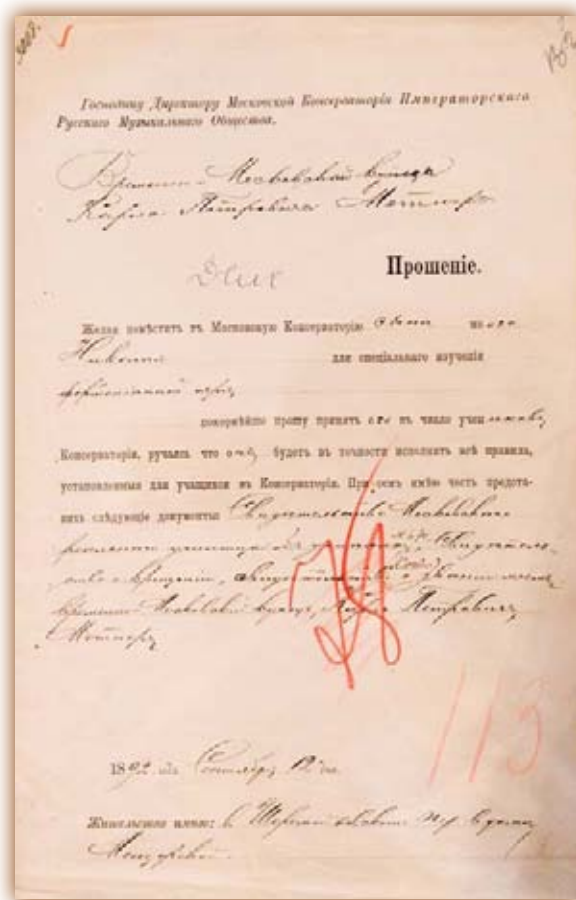 Господину Директору Московской Консерваторіи Императорскаго
Русскаго Музыкальнаго Общества.
Московской купца
Карла Петровича Метнера
Прошеніе.
Желая помѣстить въ Московскую Консерваторію сына моего
Николая для спеціальнаго изученія
фортепіанной игры
покорнѣйше прошу принять его въ число учениковъ
Консерваторіи, ручаясь что онъ будетъ въ точности исполнять всѣ правила,
установленныя для учащихся въ Консерваторіи. При семъ имѣю честь предста-
вить слѣдующіе документы: Свидѣтельство Московскаго
реальнаго училища Свидѣтель-
ство о крещеніи,
Московскій купецъ, Карлъ Петровичъ
Метнеръ
113
1892 года Сентября 12 дня.
Жительство имѣю: въ пер. въ домѣ